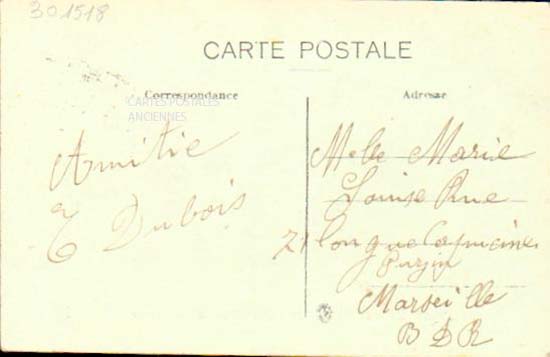 301518
CARTE POSTALE
Correspondance
Adresse
CARTES POSTALES
ANCIENNES
Amitie
E Dubois
Melle Marie
Louise Rue
21 longue Capucine
Marseille
B D R